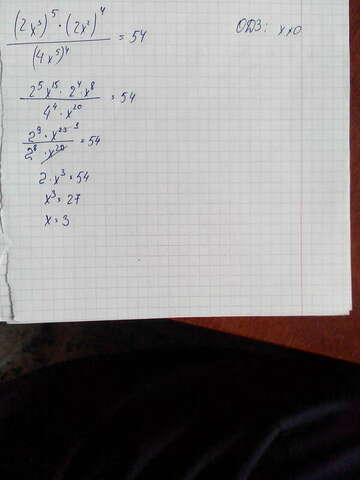 (2x³)⁵ · (2x²)⁴ / (4x⁵)⁴ = 54
ОДЗ: x≠0
2⁵x¹⁵ · 2⁴ · x⁸ / 4⁴ · x²⁰ = 54
2⁹ · x²³ ³ / 2⁸ · x²⁰ = 54
2 · x³ = 54
x³ = 27
x = 3